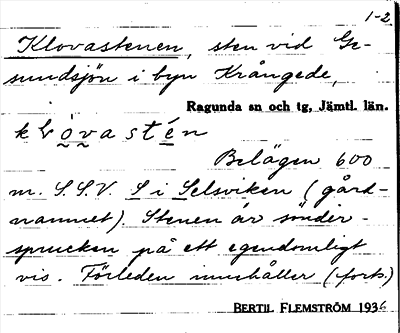 1-2
Klovastenen, sten vid Ge-
sundsjön i byn Krångede,
Ragunda sn och tg, Jämtl. län.
klovastén
Belägen 600
m. S.S.V. S i Selsviken (gård-
namnet). Stenen är sönder-
sprucken på ett egendomligt
vis. Förleden innehåller (forts.)
BERTIL FLEMSTRÖM 1936